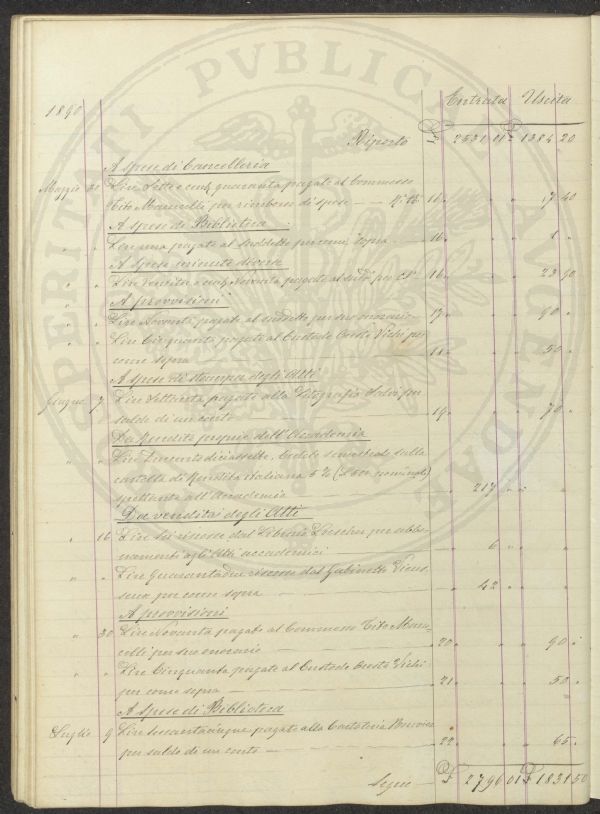 PROSPERITATI PVBLICAE AVGENDAE
1890
Entrata Uscita
Riporto £ 2531 01 £ 1384 20
A spese di Cancelleria
Maggio 31 Lire Sette e cent quaranta pagate al Commesso
Tito Marucelli per rimborso di spese — 16. 17 40
A spese di Biblioteca
" " Lire una pagate al suddetto per come sopra — 16. 1 "
A spese minute diverse
" " Lire e cent Novanta pagate al sudº per Cº 16. 23 90
A provvisioni
" " Lire Novanta pagate al suddetto per suo onorario 17. 90 "
" " Lire Cinquanta pagate al Custode Vichi per
come sopra — 18. 50 "
A spese di stampa degli Atti
Giugno 7 Lire Settanta pagate alla per
saldo di un conto — 19. 70 "
Da Rendite proprie dell'Accademia
" " Lire Duecento diciassette, semestrale sulla
cartella di Rendita italiana 5% (£ 500 nominale)
spettante all'Accademia — 217 "
Da vendita degli Atti
" 16 Lire sei riscosse dal Libraio per abbo-
namenti agli Atti accademici — 6 "
" " Lire Quarantadue riscosse dal Gabinetto Vieus-
seux per come sopra — 42 "
A provvisioni
" 30 Lire Novanta pagate al Commesso Tito Maru-
celli per suo onorario — 20. 90 "
" " Lire Cinquanta pagate al Custode Vichi
per come sopra — 21. 50 "
A spese di Biblioteca
Luglio 9 Lire sessantacinque pagate alla Cartoleria
per saldo di un conto — 22. 65 "
Segue — £ 2796 01 £ 1831 50